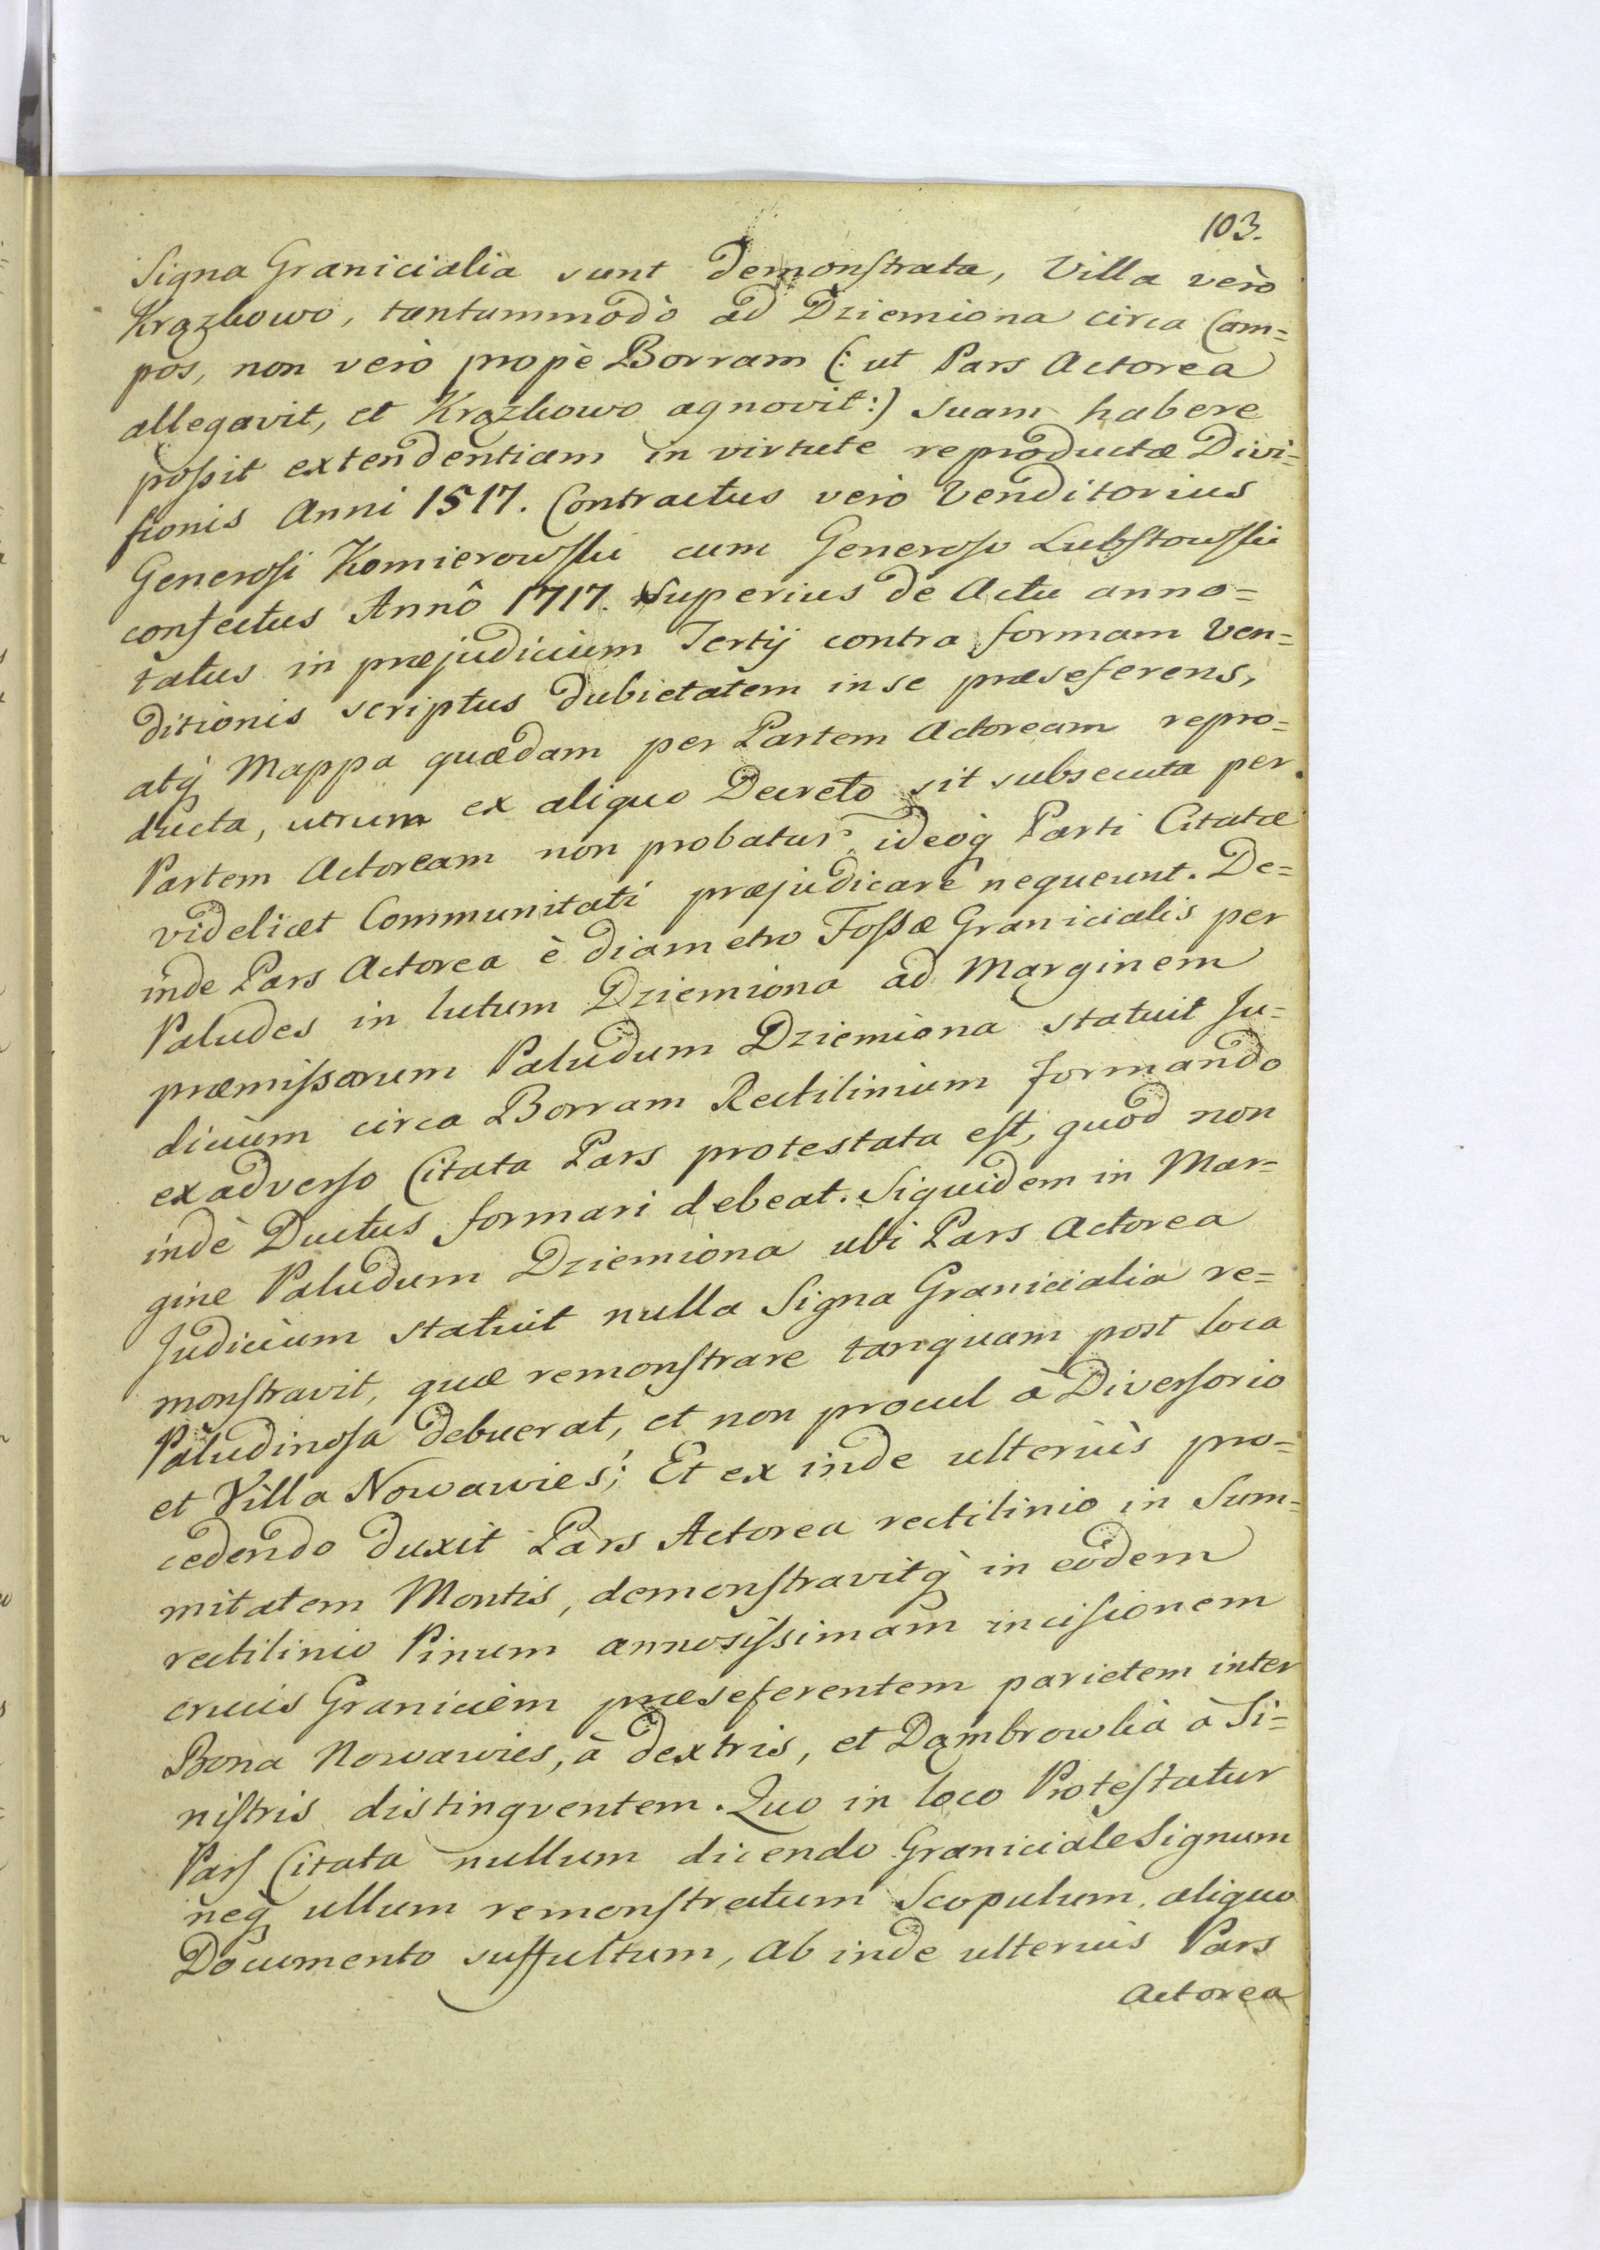 103.
Signa Granicialia sunt demonstrata, Villa verò
Krązkowo, tantummodò ad Dziemiona circa Cam=
pos, non verò propè Borram (: ut Pars Actorea
allegavit, et Krązkowo agnovit :) suam habere
possit extendentiam in virtute reproductæ Divi=
sionis Anni 1517. Contractus verò Venditorius
Generosi Komierowski cum Generoso Lubstowski
confectus Annô 1717. Superius de Actu anno=
tatus in præjudicium Tertij contra formam Ven=
ditionis scriptus dubietatem in se præseferens,
atq̀ Mappa quædam per Partem Actoream repro=
ducta, utrum ex aliquo Decreto sit subsecuta per
Partem Actoream non probatur, ideòq̀ Parti Citatæ
videlicet Communitati præjudicare nequeunt. De=
inde Pars Actorea è diametro Fossæ Granicialis per
Paludes in lutum Dziemiona ad Marginem
præmissarum Paludum Dziemiona statuit Ju=
dicium circa Borram Rectilinium formando
exadverso Citata Pars protestata est, quòd non
indè Ductus formari debeat. Siquidem in Mar=
gine Paludum Dziemiona ubi Pars Actorea
Judicium statuit nulla Signa Granicialia re=
monstravit, quæ remonstrare tanquam post loca
Paludinosa debuerat, et non procul à Diversorio
et Villa Nowawies; Et ex inde ulteriùs pro=
cedendo duxit Pars Actorea rectilinio in Sum=
mitatem Montis, demonstravitq̀ in eôdem
rectilinio Pinum annosissimam incisionem
crucis Graniciem præseferentem parietem inter
Bona Nowawies, à dextris, et Dąmbrowkà à Si=
nistris distingventem. Quo in loco Protestatur
Pars Citata nullum dicendo Graniciale Signum
neq̀ ullum remonstratum Scopulum aliquo
Documento suffultum, ab inde ulterius Pars
Actorea